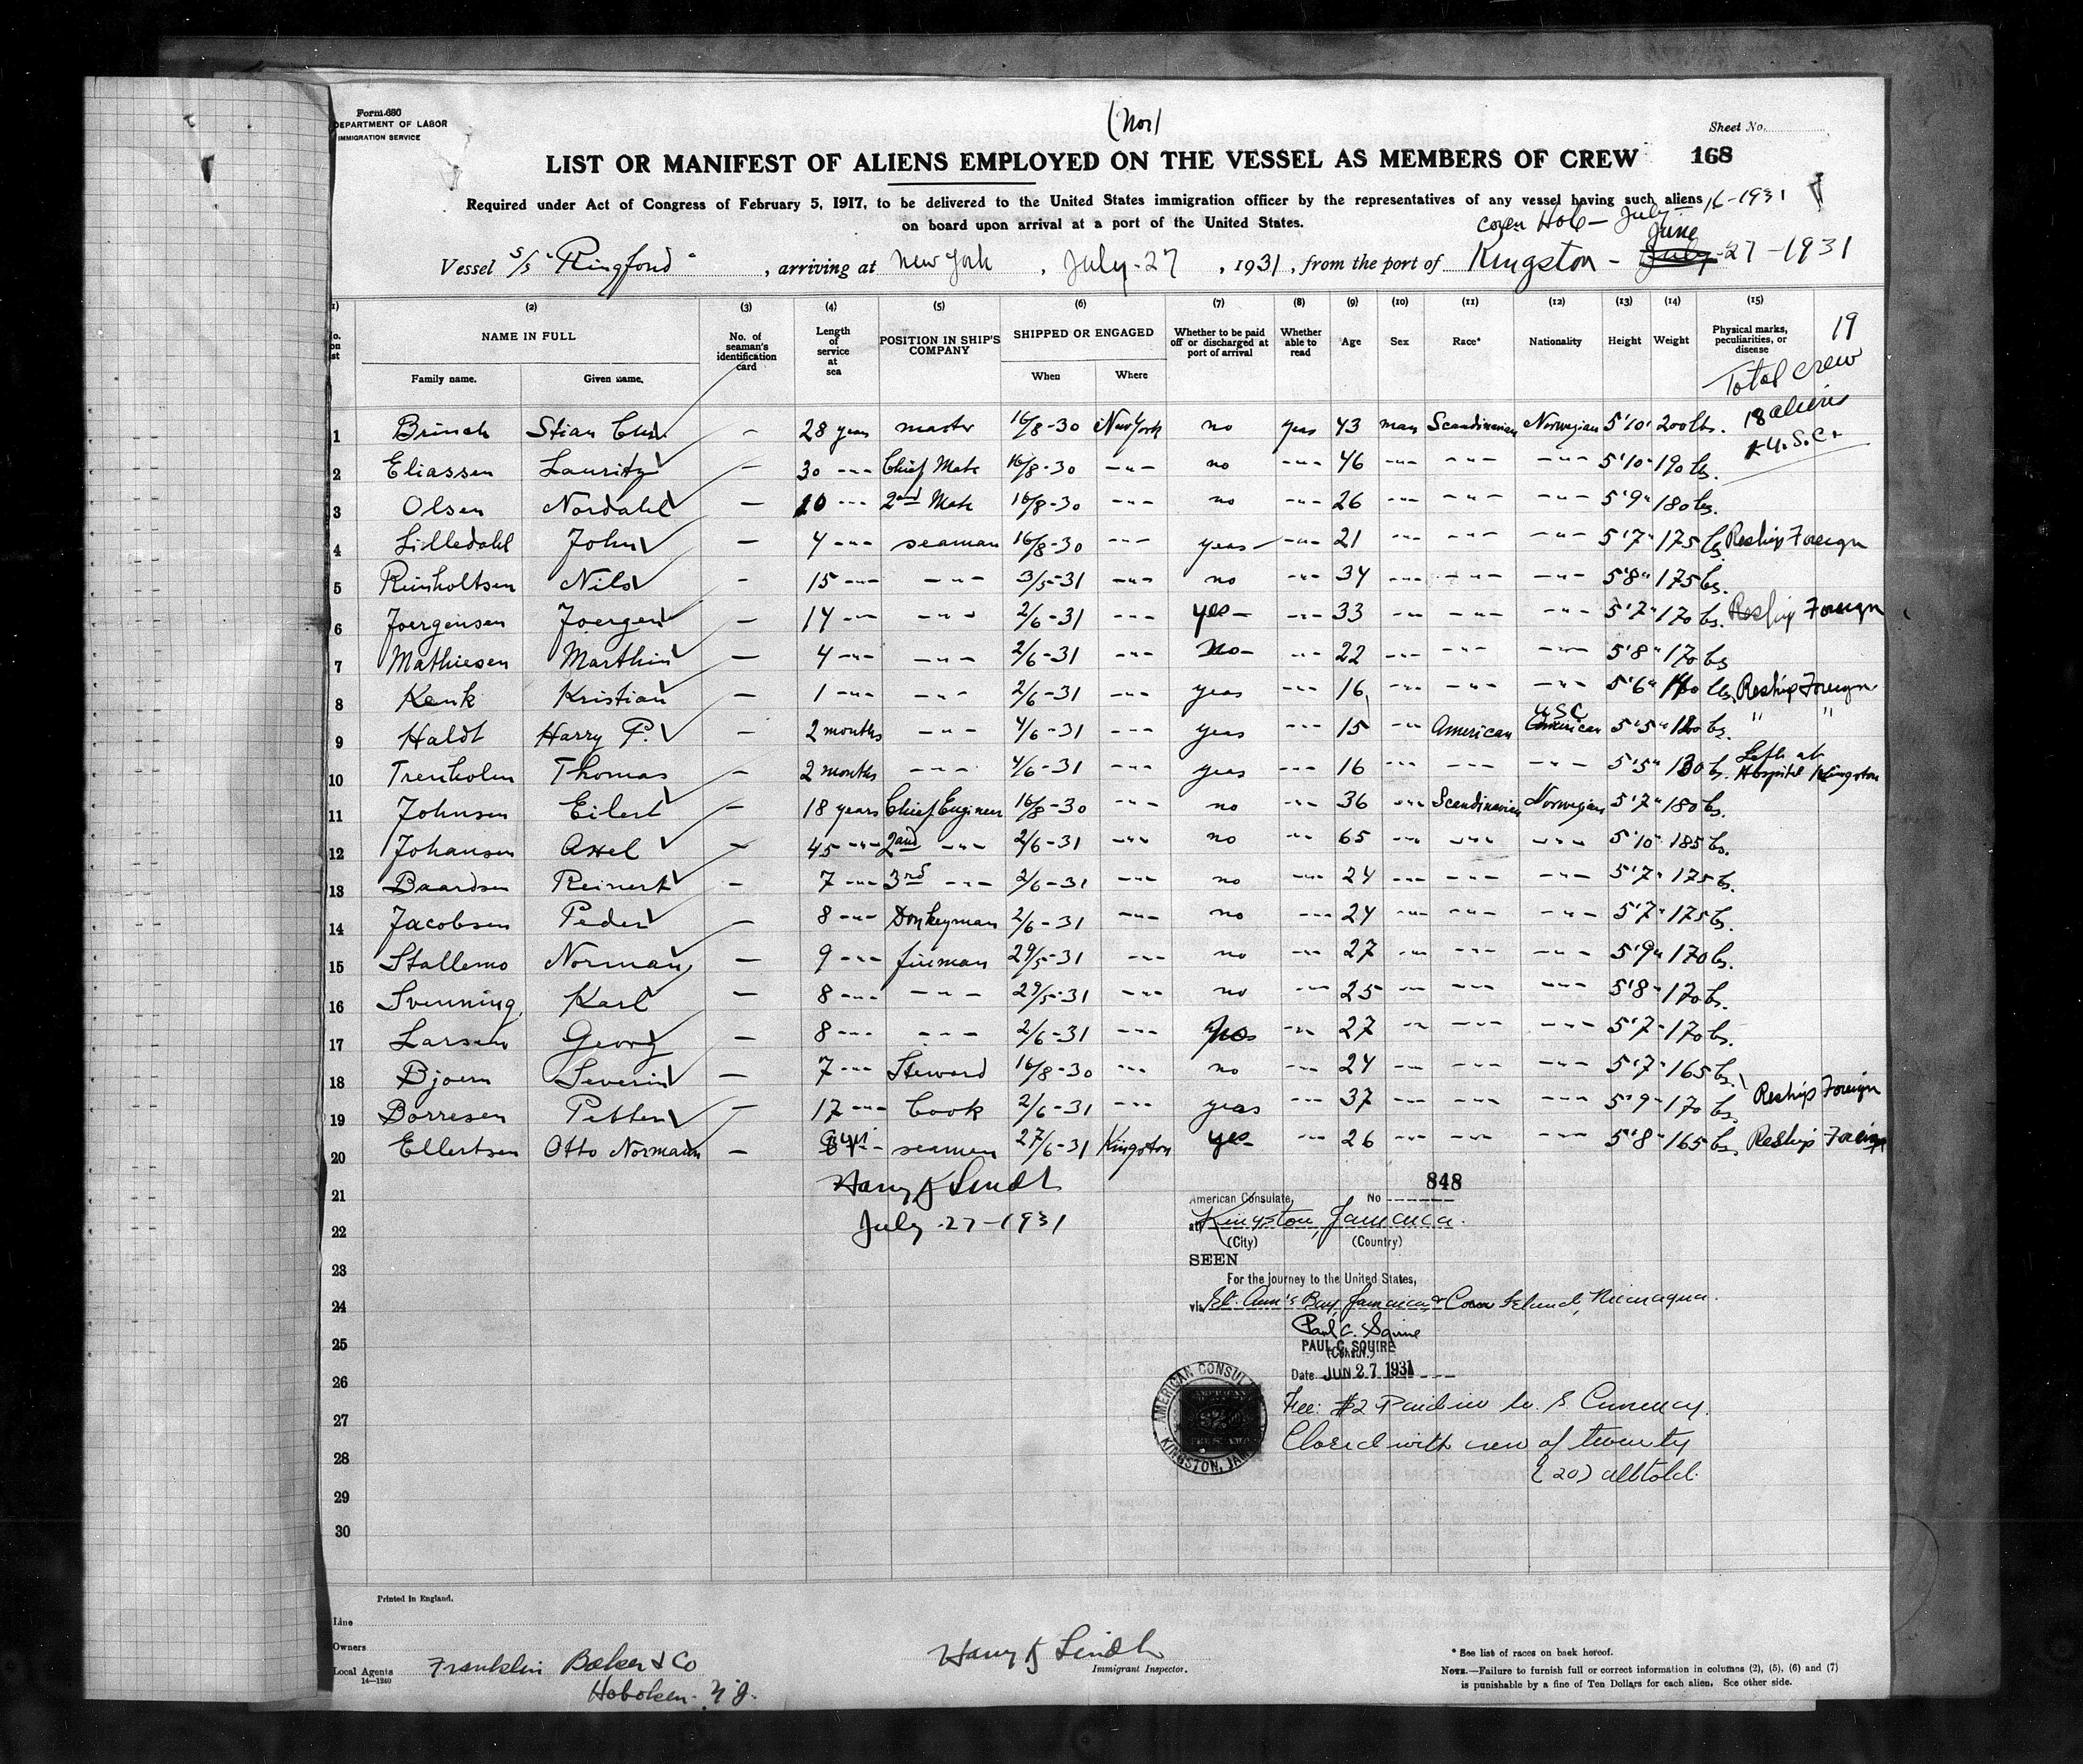 Form 680
DEPARTMENT OF LABOR
IMMIGRATION SERVICE
(Nor)
Sheet No.
LIST OR MANIFEST OF ALIENS EMPLOYED ON THE VESSEL AS MEMBERS OF CREW 168
Required under Act of Congress of February 5, 1917, to be delivered to the United States immigration officer by the representatives of any vessel having such aliens
on board upon arrival at a port of the United States.
July 16-1931
June
Vessel S/S "Ringfond", arriving at New York, July-27, 1931, from the port of Kingston - July-27-1931
(1) (2) (3) (4) (5) (6) (7) (8) (9) (10) (11) (12) (13) (14) (15)
No. on list NAME IN FULL Family name. Given name. No. of seaman's identification card Length of service at sea POSITION IN SHIP'S COMPANY SHIPPED OR ENGAGED When Where Whether to be paid off or discharged at port of arrival Whether able to read Age Sex Race* Nationality Height Weight Physical marks, peculiarities, or disease
19
Total crew
18 aliens
1 U.S.C.
1 Brinch Stian Chr. - 28 years master 16/8-30 New York no yes 43 man Scandinavian Norwegian 5'10" 200 lbs.
2 Eliassen Lauritz - 30 -"- Chief Mate 16/8-30 -"- no -"- 46 -"- -"- -"- 5'10" 190 lbs.
3 Olsen Nordahl - 10 -"- 2nd Mate 16/8-30 -"- no -"- 26 -"- -"- -"- 5'9" 180 lbs.
4 Lilledahl John - 4 -"- seaman 16/8-30 -"- yes -"- 21 -"- -"- -"- 5'7" 175 lbs Reship Foreign
5 Reinholtsen Nils - 15 -"- -"- 3/5-31 -"- no -"- 34 -"- -"- -"- 5'8" 175 lbs.
6 Joergensen Joergen - 14 -"- -"- 2/6-31 -"- yes -"- 33 -"- -"- -"- 5'7" 170 lbs. Reship Foreign
7 Mathiesen Marthin - 4 -"- -"- 2/6-31 -"- no -"- 22 -"- -"- -"- 5'8" 170 lbs
8 Kenk Kristian - 1 -"- -"- 2/6-31 -"- yes -"- 16 -"- -"- -"- 5'6" lbs. Reship Foreign
9 Haldt Harry P. - 2 months -"- 4/6-31 -"- yes -"- 15 -"- American American USC 5'5" 120 lbs. " "
10 Trenholm Thomas - 2 months -"- 4/6-31 -"- yes -"- 16 -"- -"- -"- 5'5" 130 lbs. Left at Hospital Kingston
11 Johnsen Eilert - 18 years Chief Engineer 16/8-30 -"- no -"- 36 -"- Scandinavian Norwegian 5'7" 180 lbs.
12 Johansen Axel - 45 -"- 2nd -"- 2/6-31 -"- no -"- 65 -"- -"- -"- 5'10" 185 lbs.
13 Baardsen Reinert - 7 -"- 3rd -"- 2/6-31 -"- no -"- 24 -"- -"- -"- 5'7" 175 lbs.
14 Jacobsen Peder - 8 -"- Donkeyman 2/6-31 -"- no -"- 24 -"- -"- -"- 5'7" 175 lbs.
15 Stallemo Norman - 9 -"- fireman 29/5-31 -"- no -"- 27 -"- -"- -"- 5'9" 170 lbs.
16 Svenning Karl - 8 -"- -"- 29/5-31 -"- no -"- 25 -"- -"- -"- 5'8" 170 lbs.
17 Larsen Georg - 8 -"- -"- 2/6-31 -"- no -"- 27 -"- -"- -"- 5'7" 170 lbs.
18 Bjoern Severin - 7 -"- Steward 16/8-30 -"- no -"- 24 -"- -"- -"- 5'7" 165 lbs.
19 Borresen Petter - 17 -"- Cook 2/6-31 -"- yes -"- 37 -"- -"- -"- 5'9" 170 lbs Reship Foreign
20 Ellertsen Otto Normann - seaman 27/6-31 Kingston yes -"- 26 -"- -"- -"- 5'8" 165 lbs. Reship Foreign
21 Harry J Lindt
22 July-27-1931
23
24
25
26
27
28
29
30
American Consulate, No 848
at Kingston, Jamaica.
(City) (Country)
SEEN
For the journey to the United States,
via St. Ann's Bay, Jamaica & Corn Island, Nicaragua.
Paul C. Squire
PAUL C. SQUIRE
(Consul.)
Date JUN 27 1931
AMERICAN CONSULATE
KINGSTON, JAMAICA
Fee: $2 Paid in U. S. Currency.
Closed with crew of twenty
(20) all told.
Printed in England.
Line
Owners
Local Agents Franklin Baker & Co
14-1240
Hoboken. N.J.
Harry J Lindt
Immigrant Inspector.
* See list of races on back hereof.
NOTE.—Failure to furnish full or correct information in columns (2), (5), (6) and (7)
is punishable by a fine of Ten Dollars for each alien. See other side.